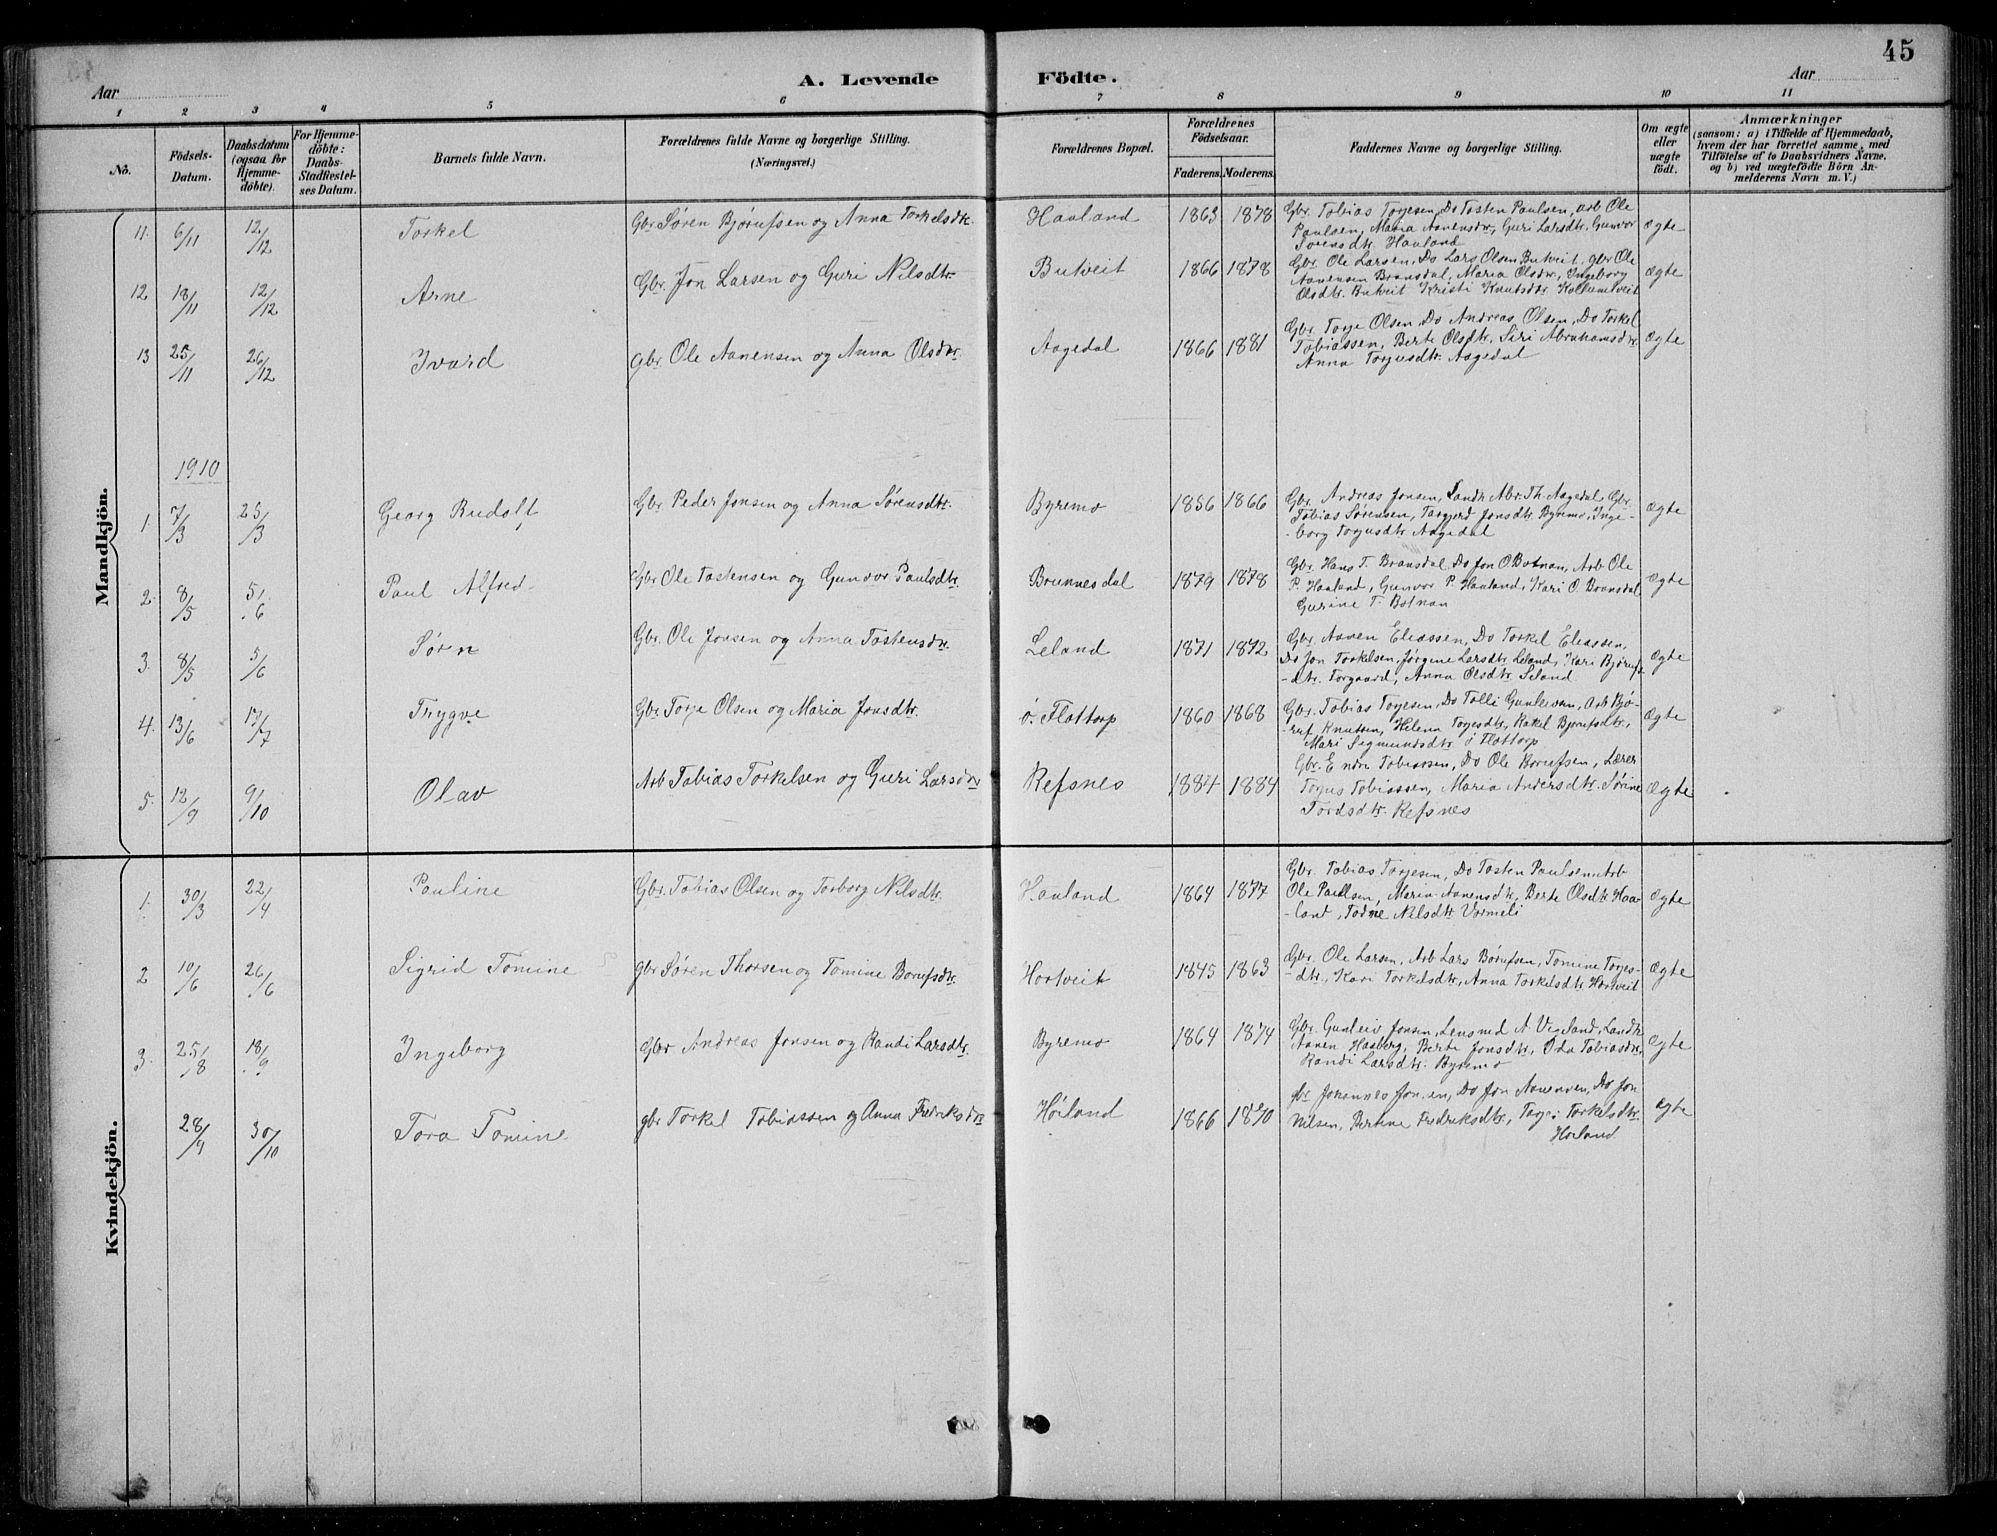 45
A. Levende Födte.
Aar
Aar
1 2 3 4 5 6 7 8 9 10 11
No.
Födsels-Datum.
Daabsdatum (ogsaa for Hjemme-döbte).
For Hjemme-döbte: Daabs-Stadfæstel-ses Datum.
Barnets fulde Navn.
Forældrenes fulde Navne og borgerlige Stilling. (Næringsvei.)
Forældrenes Bopæl.
Forældrenes Födselsaar.
Faderens. Moderens.
Faddernes Navne og borgerlige Stilling.
Om ægte eller uægte født.
Anmærkninger
(saasom: a) i Tilfælde af Hjemmedaab,
hvem der har forrettet samme, med
Tilföielse af to Daabsvidners Navne,
og b) ved uægtefödte Börn An-
melderens Navn m. V.)
Mandkjön.
11. 6/11 12/12 Torkel Gbr Søren Bjørufsen og Anna Torkelsdtr. Haaland 1863 1878 Gbr. Tobias Torjesen, Do Tosten Paulsen, arb Ole
Paulsen, Maria Aanensdtr, Guri Larsdtr, Gunvor
Sørensdtr. Haaland ægte
12 18/11 12/12 Arne Gbr. Jon Larsen og Guri Nilsdtr. Butveit 1866 1878 Gbr. Ole Larsen, Do Lars Olsen Butveit, gbr Ole
Aanensen Bransdal, Maria Olsdtr, Ingeborg
Olsdtr. Butveit Kristi Knutsdtr Kollemtveit ægte
13 25/11 26/12 Ivard Gbr. Ole Aanensen og Anna Olsdtr Aagedal 1866 1881 Gbr. Torje Olsen, Do Andreas Olsen, Do Torkel
Tobiassen, Berte Olsdtr, Siri Abrahamsdtr
Anna Torjusdtr. Aagedal ægte
1910
1. 7/3 25/3 Georg Rudolf Gbr Peder Jonsen og Anna Sørensdtr. Byremo 1856 1866 Gbr. Andreas Jonsen, Landh. Abr. Th. Aagedal Gbr.
Tobias Sørensen, Targjerd Jonsdtr. Byremo, Inge-
-borg Torjusdtr Aagedal ægte
2. 8/5 5/6 Paul Alfred Gbr Ole Tostensen og Gunvor Paulsdtr. Brunnesdal 1879 1878 Gbr. Hans T. Bransdal Do Jon O Botnan, Arb Ole
P. Haaland, Gunvor P. Haaland, Kari O. Bransdal
Gurine T. Botnan ægte
3. 8/5 5/6 Sørn Gbr. Ole Jonsen og Anna Tostensdtr. Leland 1871 1872 Gbr. Aanen Eliassen, Do Torkel Eliassen,
Do Jon Torkelsen, Jørgine Larsdtr. Leland, Kari Bjørufs-
-dtr. Torgaard, Anna Olsdtr Leland ægte
4. 13/6 17/7 Trygve Gbr Torje Olsen og Maria Jonsdtr. ø. Flottorp 1860 1868 Gbr. Tobias Torjesen, Do Tolli Gunleivsen, Arb Bjø-
-ruf Knutsen, Helena Torjesdtr, Rakel Bjørufsdtr,
Mari Sigmundsdtr. ø Flottorp ægte
5. 12/9 9/10 Olav Arb Tobias Torkelsen og Guri Larsdtr Refsnes 1884 1884 Gbr. Endre Tobiassen, Do Ole Borufsen, Lærer
Torjus Tobiassen, Maria Andersdtr. Sørine
Tordsdtr. Refsnes ægte
Kvindekjön.
1. 30/3 22/4 Pauline Gbr. Tobias Olsen og Torborg Nilsdtr. Haaland 1864 1877 Gbr. Tobias Torjesen, Do Tosten Paulsen Arb
Ole Paulsen, Maria Aanensdtr, Berte Olsdtr Haa-
-land, Todne Nilsdtr Vormeli ægte
2 10/6 26/6 Sigrid Tomine gbr Søren Thorsen og Tomine Borufsdtr. Hortveit 1845 1863 Gbr. Ole Larsen, Arb Lars Børufsen, Tomine Torjes-
-dtr., Kari Torkelsdtr, Anna Torkelsdtr Hortveit ægte
3. 25/8 18/9 Ingeborg Gbr Andreas Jonsen og Randi Larsdtr. Byremo 1864 1874 Gbr. Gunleiv Jonsen, Lensmd A. Vigeland, Landh.
Aanen Haaberg, Berte Jonsdtr, Oda Tobiasdtr,
Randi Larsdtr. Byremo ægte
28/9 30/10 Tora Tomine gbr Torkel Tobiassen og Anna Fredriksdtr Høiland 1866 1870 gbr Johannes Jonsen, Do Jon Aanensen, Do Jon
Nilsen, Bertine Fredriksdtr., Torje Torkelsdtr.
Høiland ægte